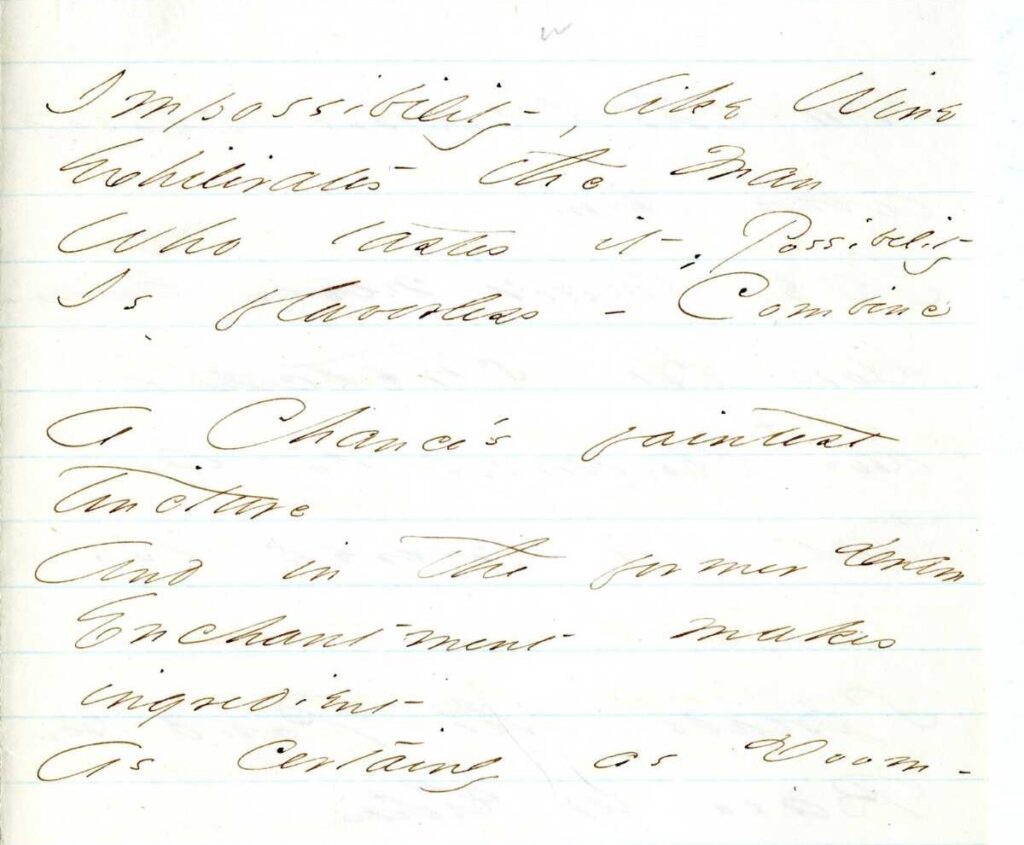 Impossibility, like Wine
Exhilirates the Man
Who tastes it; Possibility
Is flavorless - Combine
A Chance's faintest
tincture
And in the former dram
Enchantment makes
ingredient
As certainly as Doom -